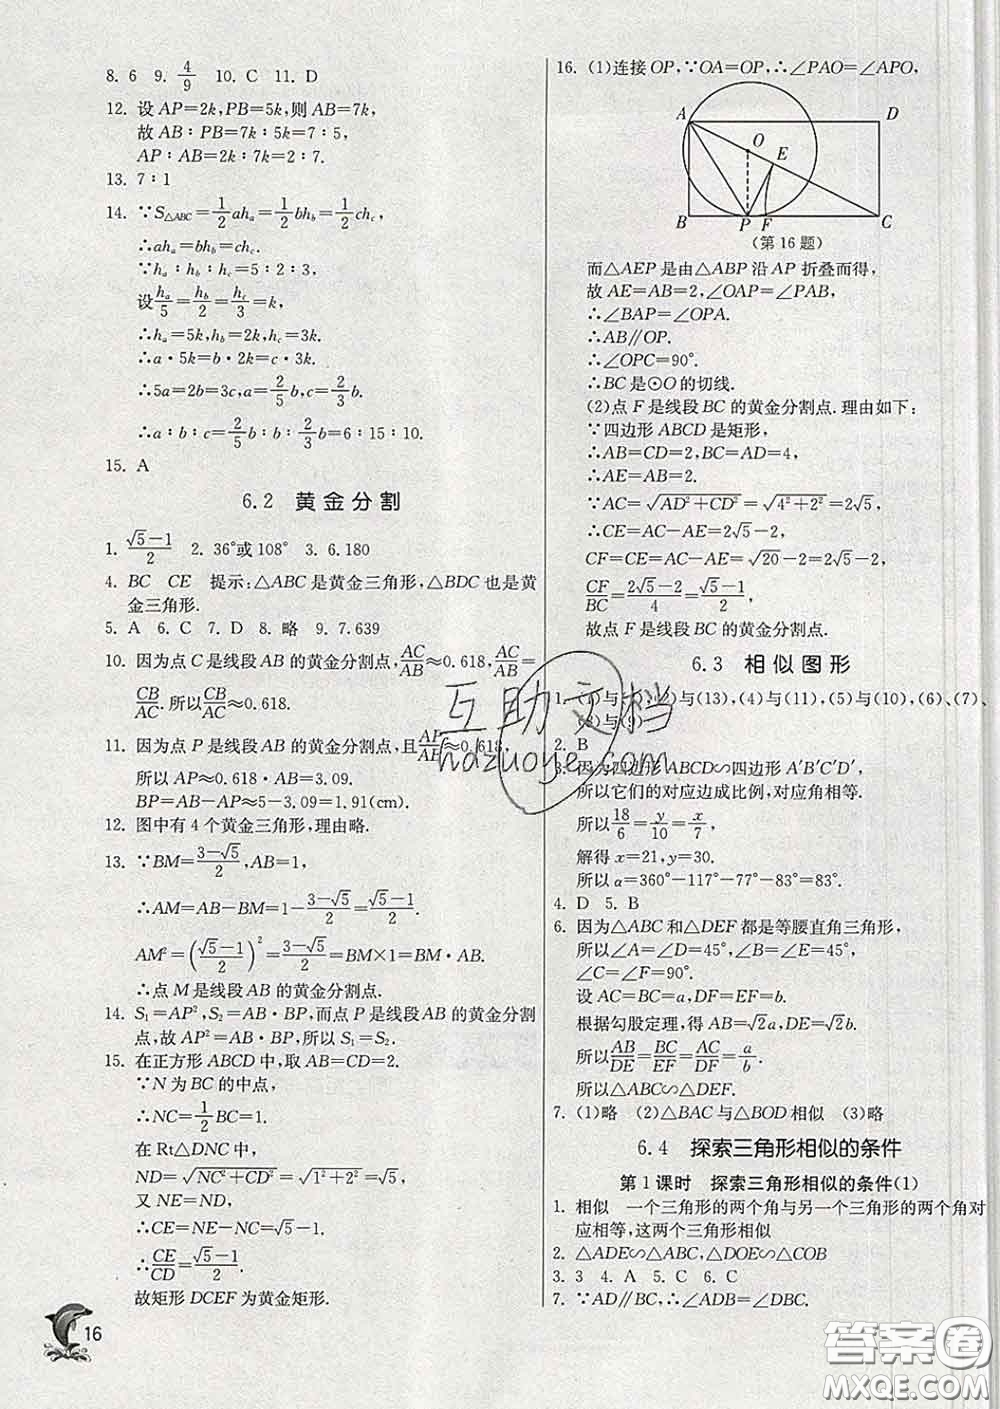 8. 6　9. 4/9　10. C　11. D
12. 设 AP=2k,PB=5k,则 AB=7k,
故 AB∶PB=7k∶5k=7∶5,
AP∶AB=2k∶7k=2∶7.
13. 7∶1
14. ∵S△ABC=1/2 ahₐ=1/2 bh_b=1/2 ch_c,
∴ahₐ=bh_b=ch_c.
∵hₐ∶h_b∶h_c=5∶2∶3,
设hₐ/5=h_b/2=h_c/3=k,
∴hₐ=5k,h_b=2k,h_c=3k.
∴a·5k=b·2k=c·3k.
∴5a=2b=3c,a=2/5 b,c=2/3 b.
∴a∶b∶c=2/5 b∶b∶2/3 b=6∶15∶10.
15. A
6.2　黄金分割
1. (√5−1)/2　2. 36°或108°　3. 6.180
4. BC　CE　提示:△ABC 是黄金三角形,△BDC 也是黄
金三角形.
5. A　6. C　7. D　8. 略　9. 7.639
10. 因为点 C 是线段 AB 的黄金分割点,AC/AB≈0.618,AC/AB=
CB/AC.所以CB/AC≈0.618.
11. 因为点 P 是线段 AB 的黄金分割点,且AP/AB≈0.618,
所以 AP≈0.618·AB=3.09.
BP=AB−AP≈5−3.09=1.91(cm).
12. 图中有 4 个黄金三角形,理由略.
13. ∵BM=(3−√5)/2,AB=1,
∴AM=AB−BM=1−(3−√5)/2=(√5−1)/2.
AM²=((√5−1)/2)²=(3−√5)/2=BM×1=BM·AB.
∴点 M 是线段 AB 的黄金分割点.
14. S₁=AP²,S₂=AB·BP,而点 P 是行段 AB 的黄金分割
点,故 AP²=AB·BP,所以 S₁=S₂.
15. 在正方形 ABCD 中,取 AB=CD=2.
∵N 为 BC 的中点,
∴NC=1/2 BC=1.
在 Rt△DNC 中,
ND=√(NC²+CD²)=√(1²+2²)=√5.
又 NE=ND,
∴CE=NE−NC=√5−1.
∴CE/CD=(√5−1)/2.
故矩形 DCEF 为黄金矩形.
16
16. (1)连接 OP,∵OA=OP,∴∠PAO=∠APO,
A
D
O
E
B
P
F
C
(第 16 题)
而△AEP 是由△ABP 沿 AP 折叠而得,
故 AE=AB=2,∠OAP=∠PAB,
∴∠BAP=∠OPA.
∴AB∥OP.
∴∠OPC=90°.
∴BC 是⊙O 的切线.
(2)点 F 是线段 BC 的黄金分割点.理由如下:
∵四边形 ABCD 是矩形,
∴AB=CD=2,BC=AD=4.
∴AE=AB=2.
∵AC=√(AD²+CD²)=√(4²+2²)=2√5,
∴CE=AC−AE=2√5−2,
CF=CE=AC−AE=√20−2=2√5−2,
CF/BC=(2√5−2)/4=(√5−1)/2,
故点 F 是线段 BC 的黄金分割点.
6.3　相似图形
与(13),(4)与(11),(5)与(10),(6)、(7)、
(8)与(9)
2. B
3. 因为四边形 ABCD∽四边形 A′B′C′D′,
所以它们的对应边成比例,对应角相等.
所以18/6=y/10=x/7,
解得 x=21,y=30.
所以 α=360°−117°−77°−83°=83°.
4. D　5. B
6. 因为△ABC 和△DEF 都是等腰直角三角形,
所以∠A=∠D=45°,∠B=∠E=45°,
∠C=∠F=90°.
设 AC=BC=a,DF=EF=b.
根据勾股定理,得 AB=√2a,DE=√2b.
所以AB/DE=BC/EF=AC/DF=a/b.
所以△ABC∽△DEF.
7. (1)略　(2)△BAC 与△BOD 相似　(3)略
6.4　探索三角形相似的条件
第 1 课时　探索三角形相似的条件(1)
1. 相似　一个三角形的两个角与另一个三角形的两个角对
应相等,这两个三角形相似
2. △ADE∽△ABC,△DOE∽△COB
3. 3　4. A　5. C　6. C
7. ∵AD∥BC,∴∠ADB=∠DBC.
互助文档
hdzuoye.com
答案圈
MXQE.COM